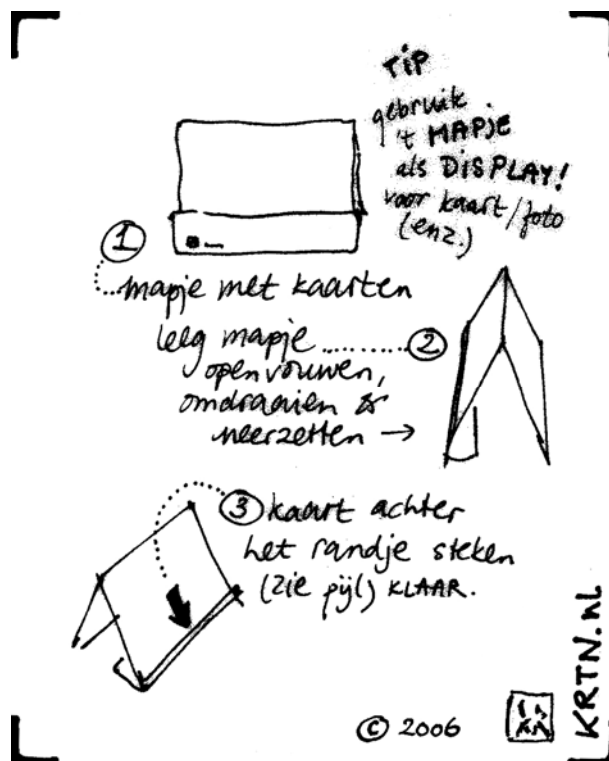 TIP
gebruik
't MAPJE
als DISPLAY!
voor kaart/foto
(enz.)
1
mapje met kaarten
leeg mapje ........... 2
openvouwen,
omdraaien &
neerzetten →
3 kaart achter
het randje steken
(zie pijl) KLAAR.
© 2006
KRTN.nL